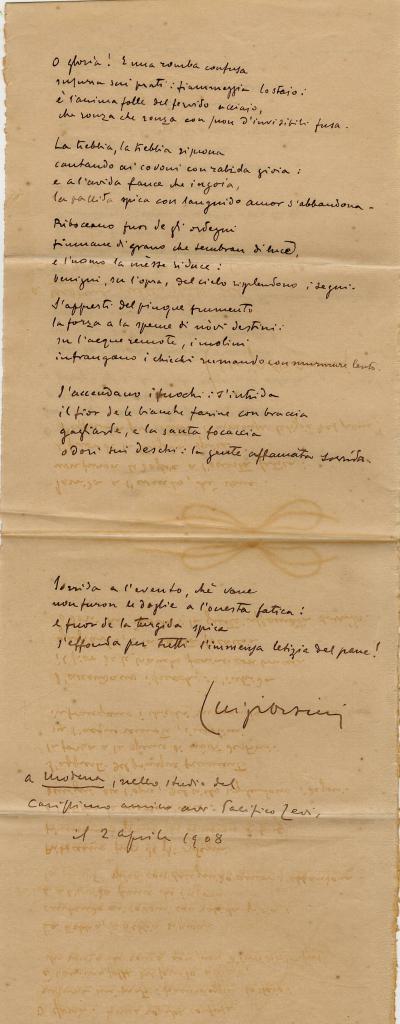 O gloria! È una romba confusa
su sui prati: fiammeggia lo staio:
è l'anima folle del fervido acciaio,
che ronza che ronza con d'invisibili fusa.
La trebbia, la trebbia risuona
cantando ai covoni con rabida gioia:
e a l'avida fauce che ingoia,
la pallida spica con languido amor s'abbandona.
Riboccano fuor de gli ordegni
fiumane di grano che sembran di luce,
e l'uomo la mèsse riduce:
benigni, su l'opra, del cielo risplendono i segni.
S'appresti del pingue frumento
la forza a la speme di novi destini:
su l'acque remote, i molini
infrangano i chicchi rumando con murmure lento.
S'accendano i fuochi: s'intrida
il fior de le bianche farine con braccia
gagliarde, e la santa focaccia
odori sui deschi: la gente affamata sorrida.
Sorrida a l'evento, chè vane
non furon le doglie a l'onesta fatica:
e fuor de la turgida spica
s'effonda per tutti l'immensa letizia del pane!
Luigi Orsini
a Modena, nello studio del
Carissimo amico avv. Pacifico Levi,
il 2 aprile 1908